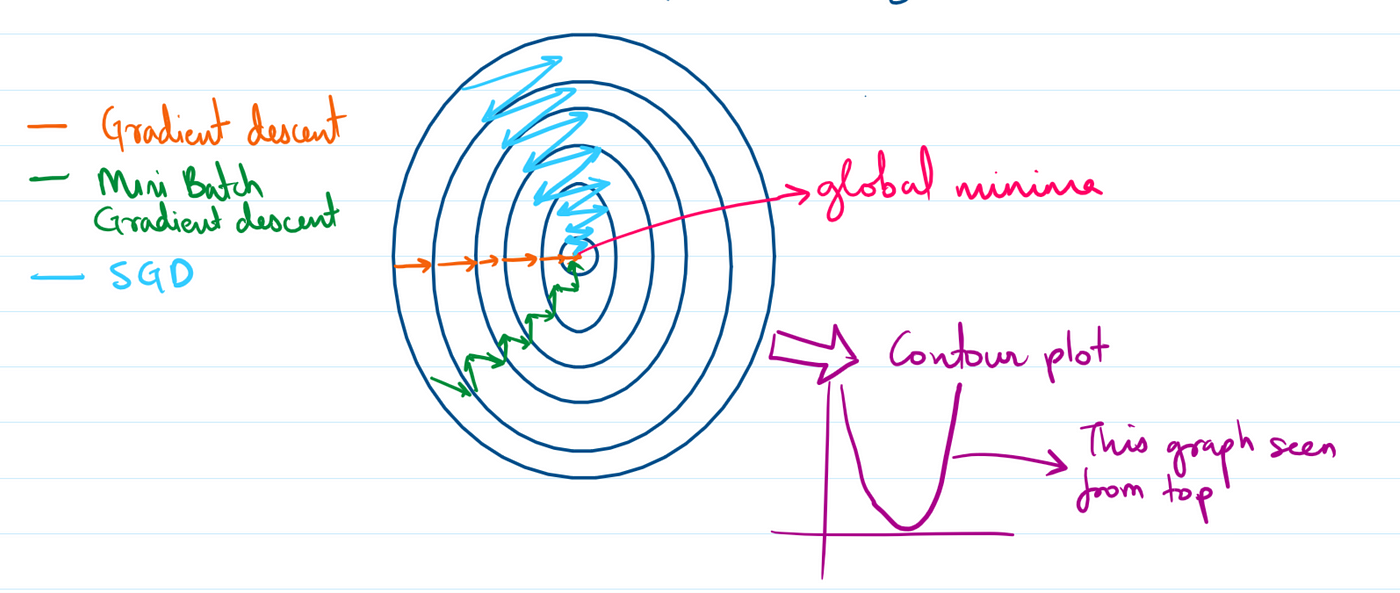 Gradient descent
Mini Batch
Gradient descent
SGD
global minima
Contour plot
This graph seen
from top